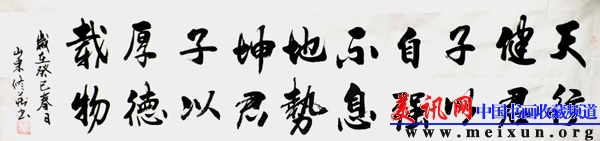 天行
健君
子以
自強
不息
地勢
坤君
子以
厚德
載物
歲在癸巳春日
山東
美讯网 中国书画收藏频道
www.meixun.org